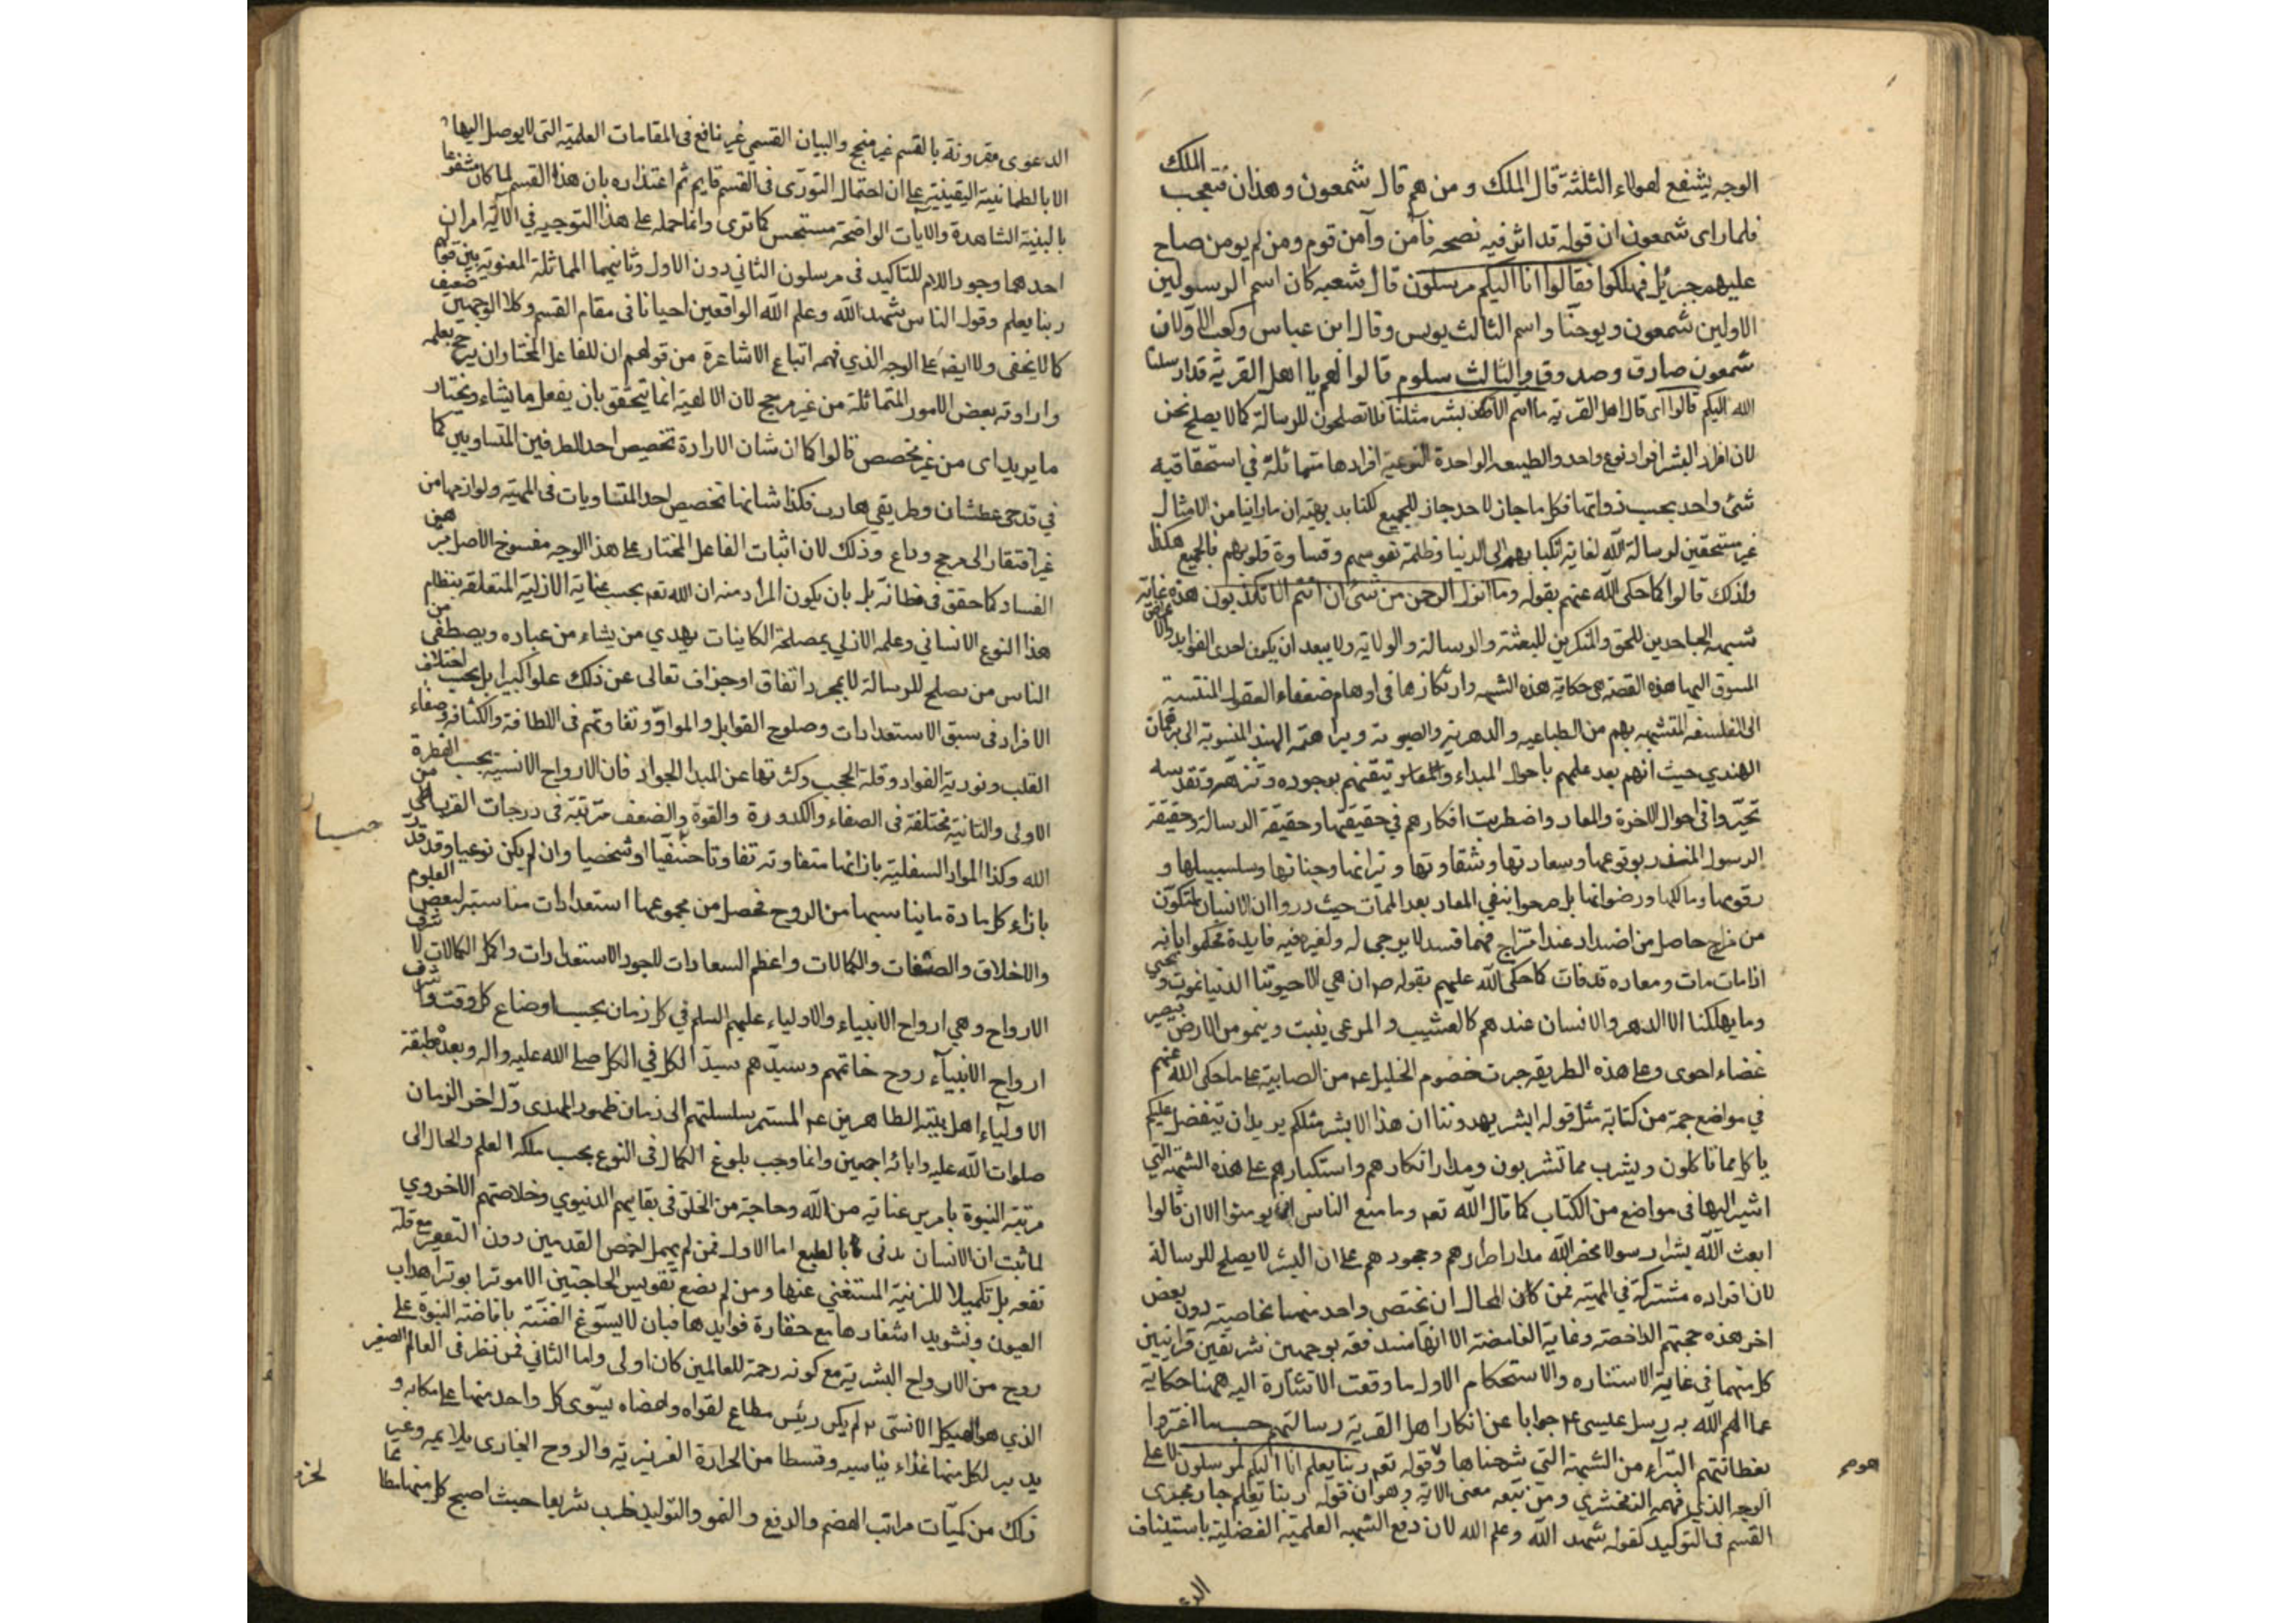 الوجه يشفع لهولاء الثلثة قال الملك و من هم قال شمعون وهذان فتعجب الملك
فلما رای شمعون ان قوله قد اثر فيه نصحه فآمن وآمن قوم ومن لم يومن صاح
عليهم جبرئيل فهلكوا فقالوا انا اليكم مرسلون قال شعبه كان اسم الرسولين
الاولين شمعون ويوحنا واسم الثالث يونس وقال ابن عباس وكعب الاولان
شمعون صادق وصدوق والثالث سلوم قالوا لهم يا اهل القرية قد ارسلنا
الله اليكم قالوا ای قال اهل القرية ما انتم الا بشر مثلنا فلا تصلحون للرسالة كما لا يصلح نحن
لان افراد البشر افراد نوع واحد والطبيعه الواحدة النوعية افرادها متماثلة في استحقاقية
شئ واحد بحسب ذواتها فكل ما جاز لاحد جاز للجميع لكنا بديهة ان ما راينا من الامثال
غير مستحقين لرسالة الله لغاية انكبابهم الى الدنيا وظلمة نفوسهم وقساوة قلوبهم فالجميع هكذا
ولذلك قالوا كما حكى الله عنهم بقوله وما انزل الرحمن من شئ ان انتم الا تكذبون هذه غاية
شبهة الجاحدين للحق والمنكرين للبعثة والرسالة والولاية ولا يبعد ان يكون احدى الفوايد والاغراض
المسوق اليها هذه القصة هی حكاية هذه الشبهه وارتكازها فی اوهام ضعفاء العقول المنتسبة
الى الفلسفه المتشبهه بهم من الطباعيه والدهرية والصبوية وبراهمة الهند المنسوبة الى برهمان
الهندي حيث انهم بعد علمهم باحوال المبداء والمعاد وتيقنهم بوجوده وتنزهه وتقدسه
تحيروا فی احوال الآخرة والمعاد واضطربت افكارهم في حقيقتها وحقيقة الرسالة وحقيقة
الرسول المنذر بوقوعها وسعادتها وشقاوتها ونيرانها وجناتها وسلسبيلها و
زقومها ومالكها ورضوانها بل صرحوا بنفي المعاد بعد الممات حيث دروا ان الانسان متكون
من مزاج حاصل من اضداد عند امتزاج فمهما فسد لا يرجی له ولغيره فيه فايدة فحكموا بانه
اذا مات مات ومعاده قد فات كما حكى الله عليهم بقوله ان هي الا حيوتنا الدنيا نموت ونحيى
وما يهلكنا الا الدهر والانسان عندهم كالعشب والمرعى ينبت وينمو من الارض فيصير
غثاء احوى وعلى هذه الطريقه جرت خصوم الخليل ع من الصابية على ما حكى الله عنهم
في مواضع جمة من كتابه مثل قوله ابشر يهدوننا ان هذا الا بشر مثلكم يريد ان يتفضل عليكم
ياكل مما تاكلون ويشرب مما تشربون ومدار انكارهم واستكبارهم على هذه الشبهة التي
اشير اليها فی مواضع من الكتاب كما قال الله تعم وما منع الناس ان يومنوا الا ان قالوا
ابعث الله بشرا رسولا فحصر الله مدار اصرارهم وجحودهم على ان البشر لا يصلح للرسالة
لان افراده مشتركة في المهية فمن كان المحال ان يختص واحد منهما بخاصية دون بعض
اخر هذه حجتهم الداحضة وغاية الغامضة الا انها مندفعة بوجهين شريفين قرانيين
كل منهما فی غاية الاستناره والاستحكام الاول ما وقعت الاشارة اليه ههنا حكاية
عما الهم الله به رسل عيسى ع جوابا عن انكار اهل القرية رسالتهم حسبما اغتروا
بفطانتهم البتراء من الشبهة التي شرحناها وقوله تعم ربنا يعلم انا اليكم لمرسلون لا على
الوجه الذي فهمه الزمخشري ومن تبعه معنى الاية وهو ان قوله ربنا يعلم جار مجرى
القسم فی التوكيد كقوله شهد الله وعلم الله لان دفع الشبهه العلمية الفضلية باستيناف
الدعوى مقرونة بالقسم غير منجح والبيان القسمي غير نافع فی المقامات العلمية التی لا يوصل اليها
الا بالطمانية اليقينية على ان احتمال التوری فی القسم قايم ثم اعتذاره بان هذا القسم لما كان مشفوعا
بالبينة الشاهدة والآيات الواضحة مستحسن كما ترى وانما حمله على هذا التوجيه فی الآية امران
احدهما وجود اللام للتاكيد فی مرسلون الثاني دون الاول وثانيهما المماثلة المعنوية بين قولهم
ربنا يعلم وقول الناس شهد الله وعلم الله الواقعين احيانا فی مقام القسم وكلا الوجهين ضعيف
كما لا يخفى ولا ايضا على الوجه الذي فهمه اتباع الاشاعرة من قولهم ان للفاعل المختار ان يرجح بعلمه
وارادته بعض الامور المتماثلة من غير مرجح لان الالهية انما تتحقق بان يفعل ما يشاء ويختار
ما يريد ای من غير مخصص قالوا كما ان شان الارادة تخصيص احد الطرفين المتساويين كما
في قدحی عطشان وطريقی هارب فكذا شانها تخصيص احد المتساويات فی المهية ولوازمها من
غير افتقار الى مرجح وداع وذلك لان اثبات الفاعل المختار على هذا الوجه مفسوخ الاصل مبرهن
الفساد كما حقق فی مظانه بل بان يكون المراد منه ان الله تعم بحسب عنايته الازلية المتعلقه بنظام
هذا النوع الانساني وعلمه الازلي بمصلحة الكاينات يهدي من يشاء من عباده ويصطفى من
الناس من يصلح للرسالة لا بمجرد اتفاق او جزاف تعالى عن ذلك علوا كبيرا بل بحسب اختلاف
الافراد فی سبق الاستعدادات وصلوح القوابل والمواد وتفاوتهم فی اللطافة والكثافة وصفاء
القلب ونورية الفواد وقلة الحجب وكثرتها عن المبدا الجواد فان الارواح الانسية بحسب الفطرة
الاولى والثانية مختلفة فی الصفاء والكدورة والقوة والضعف مترتبة فی درجات القرب من
الله وكذا المواد السفلية بازائها متفاوتة تفاوتا صنفيا او شخصيا وان لم يكن نوعيا وقد قدر
بازاء كل مادة ما يناسبها من الروح فحصل من مجموعها استعدادات مناسبة لبعض العلوم
والاخلاق والصفات والكمالات واعظم السعادات لاجود الاستعدادات واكمل الكمالات لاشرف
الارواح وهي ارواح الانبياء والاولياء عليهم السلم في كل زمان بحسب اوضاع كل وقت واشرف
ارواح الانبيآء روح خاتمهم وسيدهم سيد الكل في الكل صلى الله عليه واله وبعده طبقة
الاوليآء اهل بيته الطاهرين ع المستمر سلسلتهم الى زمان ظهور المهدی اخر الزمان
صلوات الله عليه وابائه اجمعين وانما وجب بلوغ الكمال فی النوع بحسب ملكه العلم والحال الى
مرتبة النبوة بامرين عناية من الله وحاجة من الخلق فی بقايهم الدنيوي وخلاصتهم الاخروي
لما ثبت ان الانسان مدنی بالطبع اما الاول فمن لم يهمل اخمص القدمين دون التقعير مع قلة
نفعه بل تكميلا للزينة المستغني عنها ومن لم يضع تقويس الحاجبين الا موترا بوتر اهداب
العيون وتشويد اشفارها مع حقارة فوايدها فبان لا يسوغ الضنة بافاضة النبوة على
روح من الارواح البشرية مع كونه رحمة للعالمين كان اولى واما الثاني فمن نظر فی العالم الصغير
الذي هو الهيكل الانسی لم يكن رئيس مطاع لقواه واعضاه يسوی كل واحد منها على مكانه و
يدبر لكل منها غذاء يناسبه وقسطا من الحرارة الغريزية والروح البخاری يلايمه وغير
ذلك من كميات مراتب الهضم والدفع والنمو والتوليد حيث اصبح كل منها